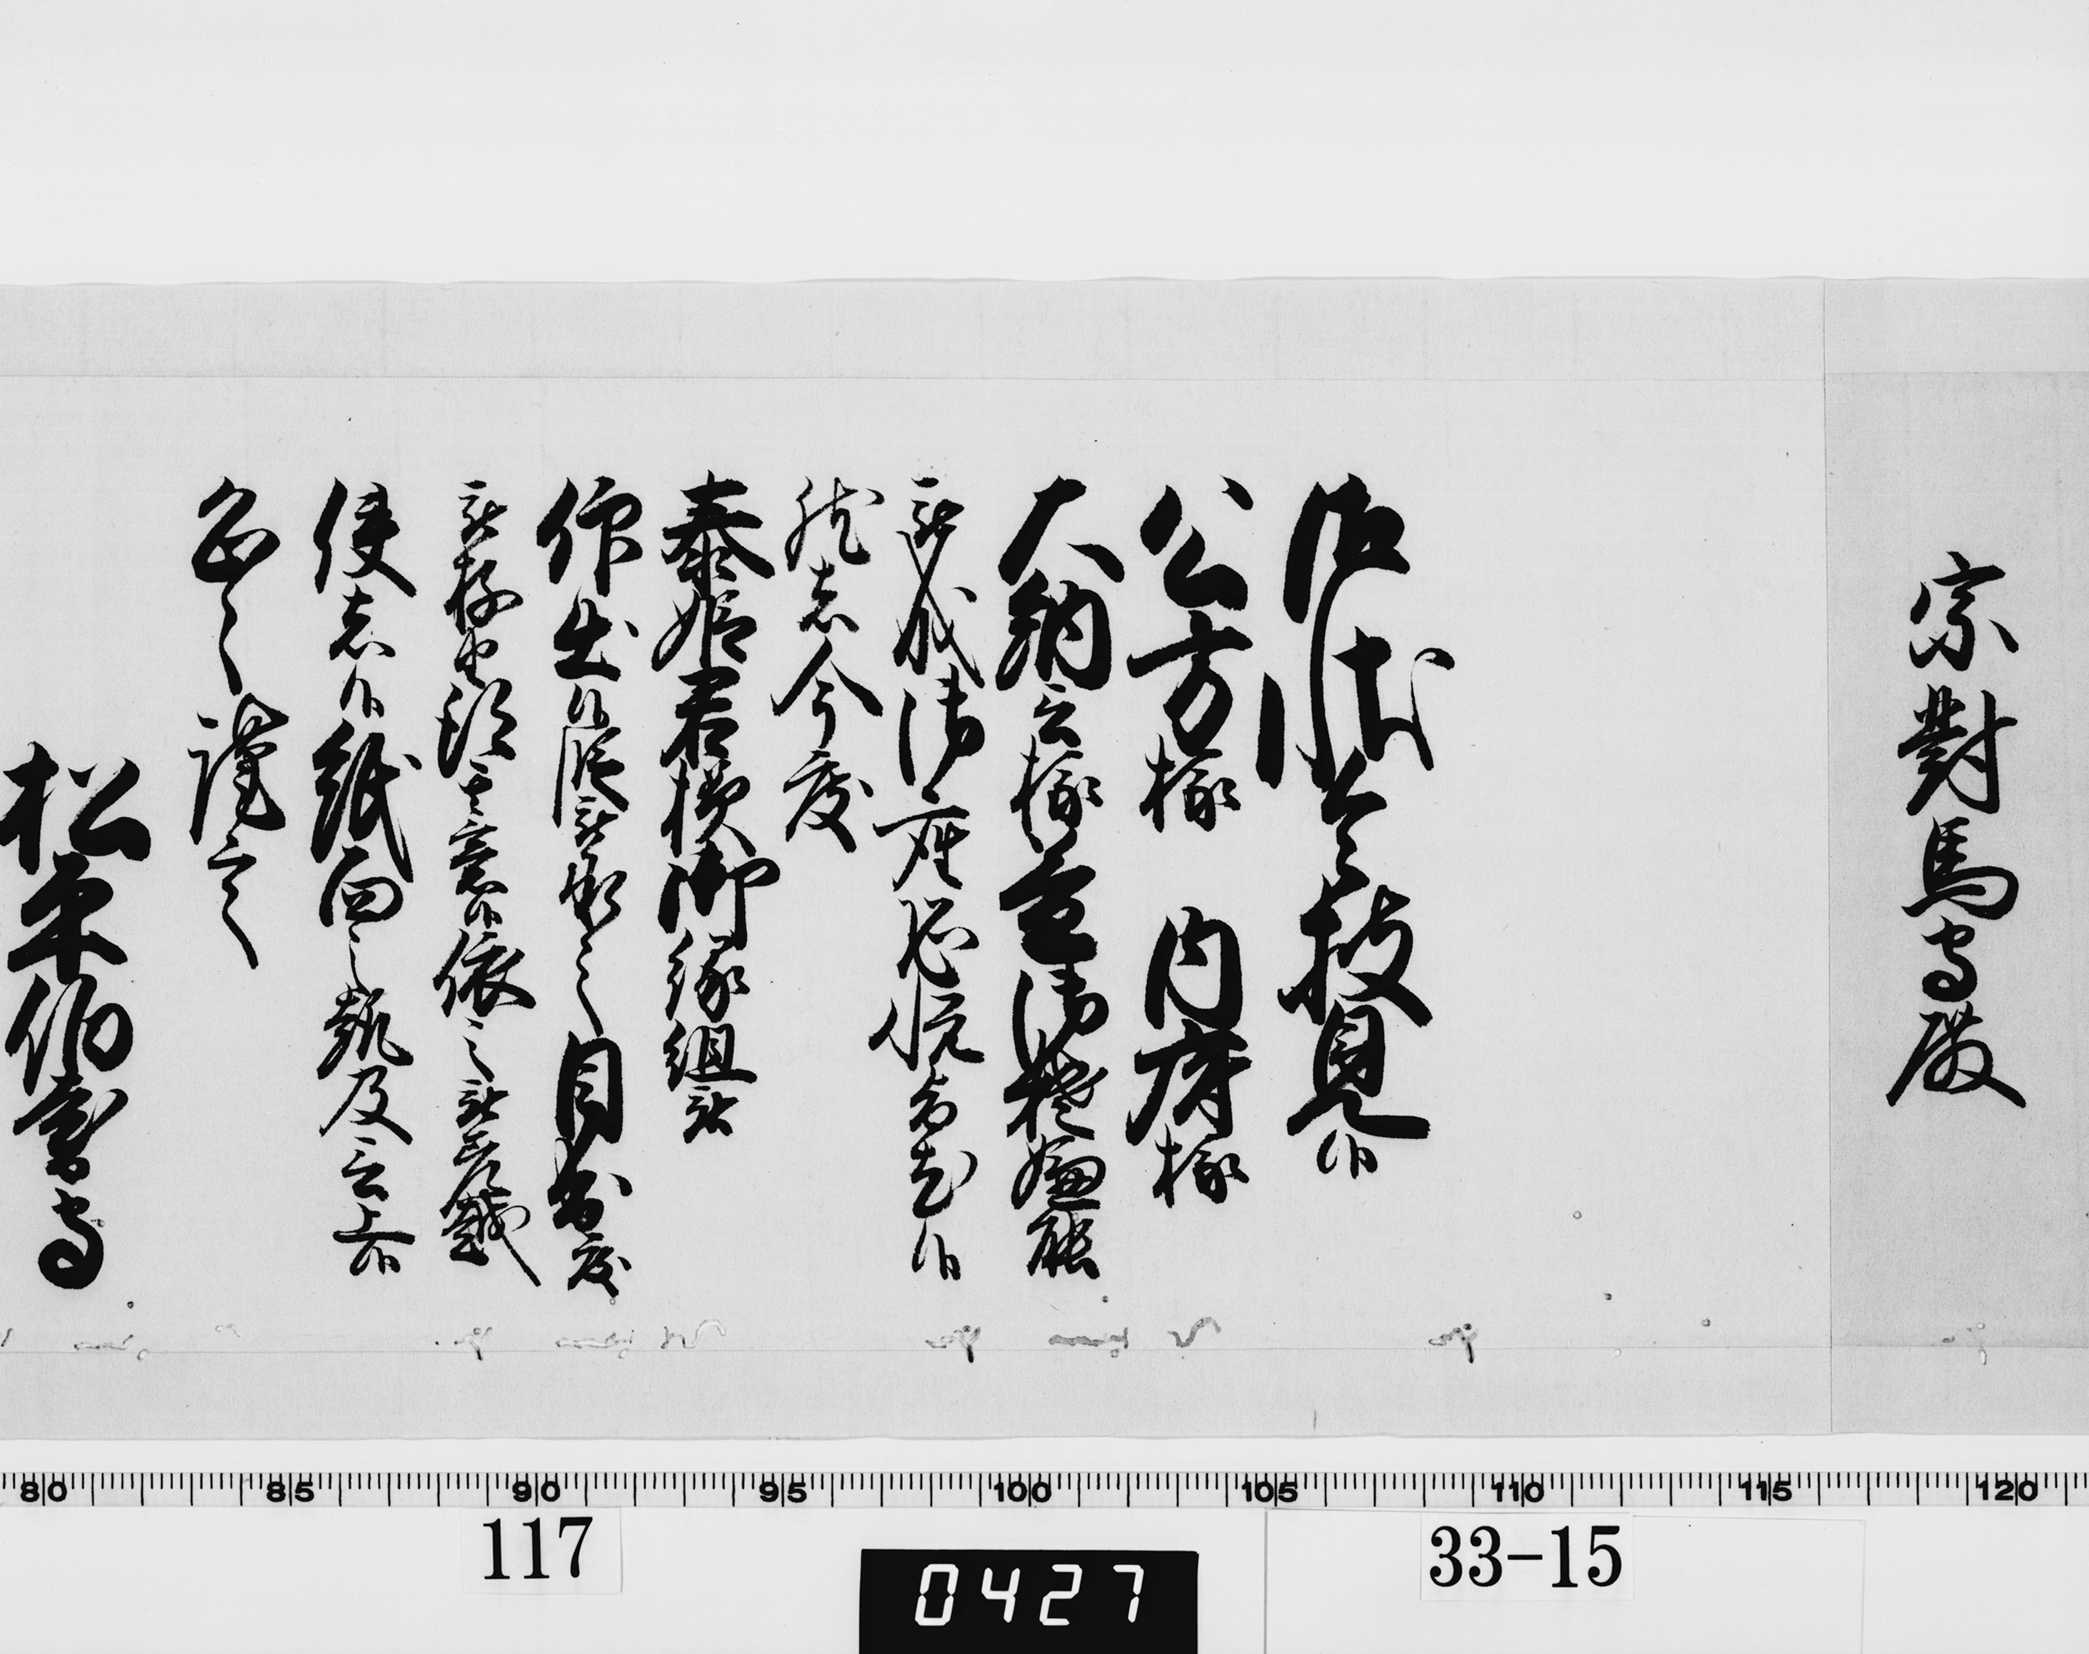 宗對馬守殿
御状令披見候
公方様　内府様
大納言様益御機嫌能
被成御座恐悦旨尤候
然者今度
泰姫君様御縁組被
仰出候段被承之目出度
被存由得其意候依之被差越
使者候紙面之趣及言上候
恐々謹言
松平伯耆守
80 85 90 95 100 105 110 115 120
117
0427
33-15